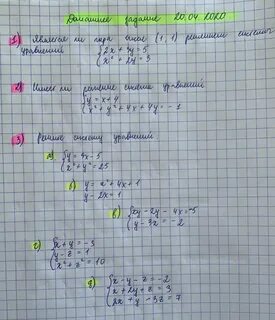 Домашнее задание 20.04.2020
1) Является ли пара чисел (1; 1) решением системы
уравнений { 2x + 3y = 5
x² + 2y = 3
2) Имеет ли решение система уравнений
{ y = x + 4
x² + y² + 4x + 4y = -1
3) Решите систему уравнений
а) { y = 4x - 3
x² + y² = 25
б) y = x² + 4x + 1
y - 2x = 1
в) { xy - 2y - 4x = -5
y - 3x = -2
г) { x + y = -3
y - z = 1
x² + z² = 10
д) { x - y - z = -2
x + 2y + z = 3
2x + y - 3z = 7